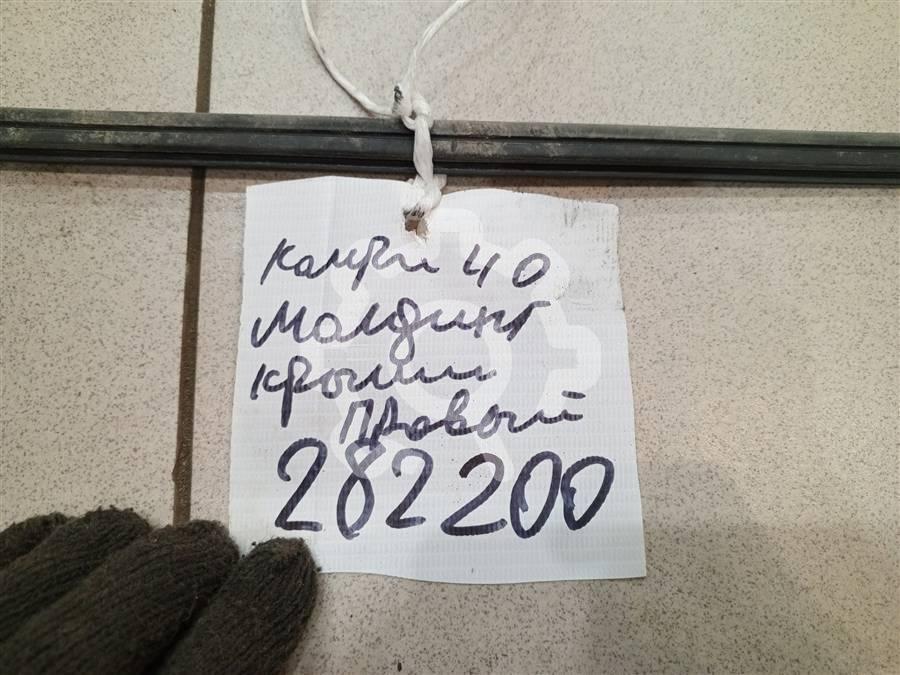 Камри 40
Молдинг
крыши
Правый
282200